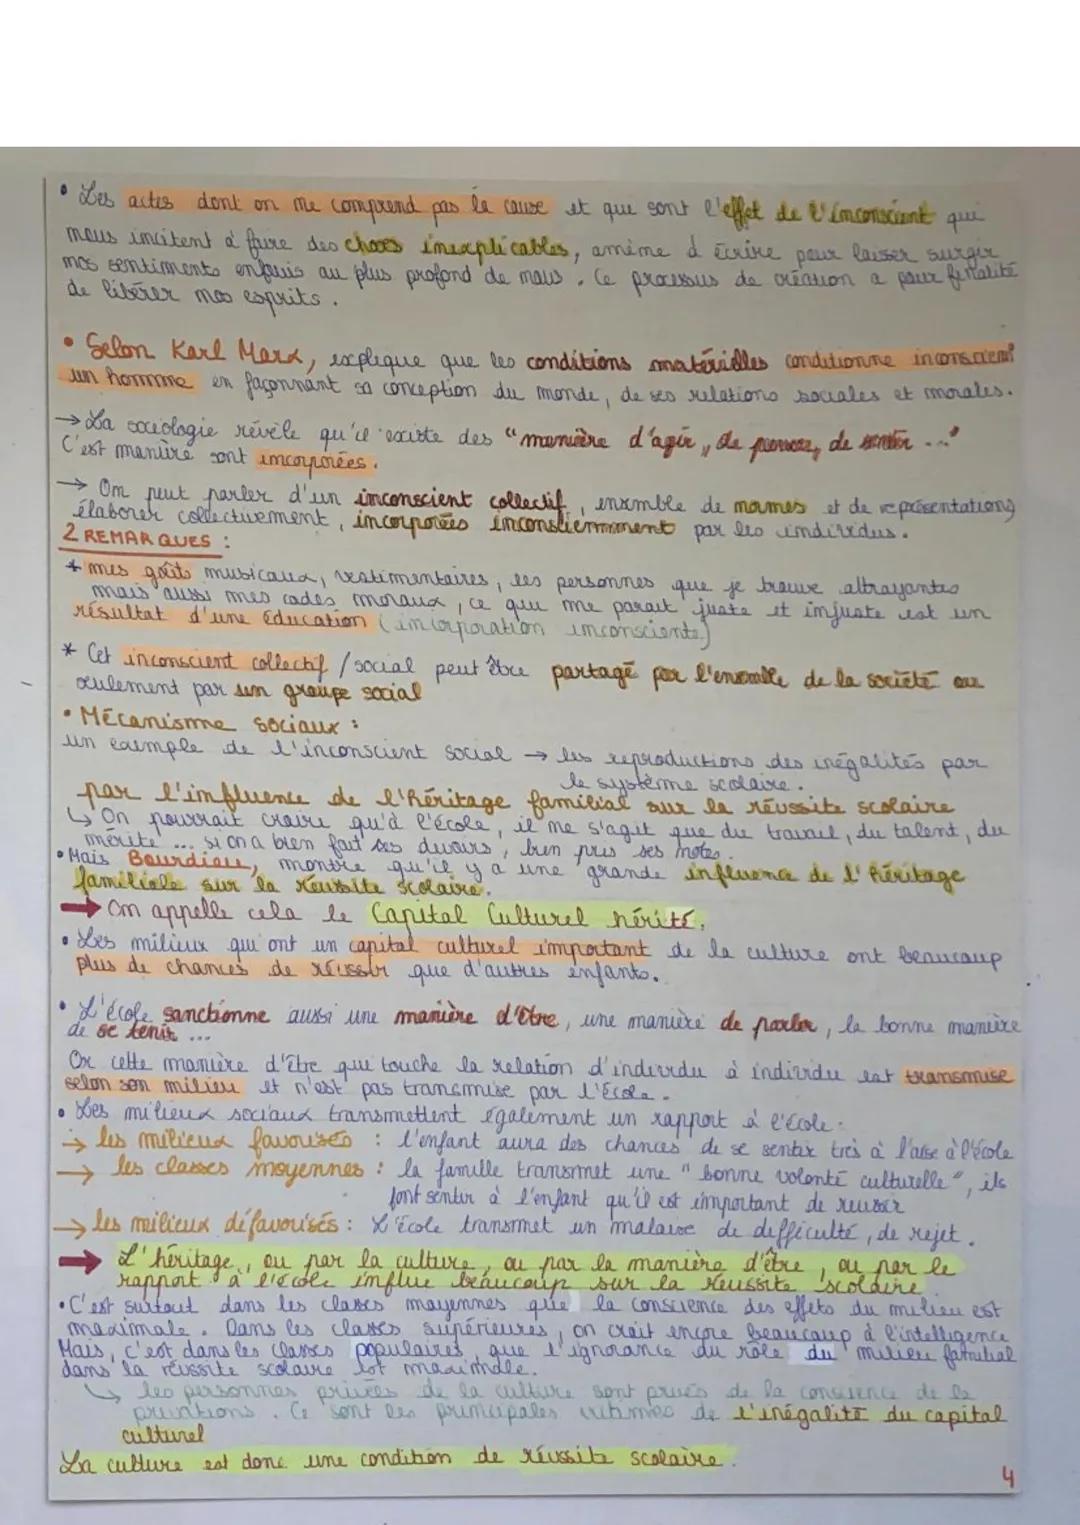 • Les actes dont on ne comprend pas la cause et que sont l'effet de l'inconscient qui
nous incitent à faire des choses inexplicables, amène à écrire pour laisser surgir
nos sentiments enfouis au plus profond de nous. Ce processus de création a pour finalité
de libérer nos esprits.
• Selon Karl Marx, explique que les conditions matérielles conditionne inconsciemt
un homme en façonnant sa conception du monde, de ses relations sociales et morales.
→ La sociologie révèle qu'il existe des "manière d'agir, de penser, de sentir ..."
C'est manière sont incorporées.
→ On peut parler d'un inconscient collectif, ensemble de normes et de représentations
élaborer collectivement, incorporées inconsciemment par les individus.
2 REMARQUES :
* mes goûts musicaux, vestimentaires, les personnes que je trouve attrayantes
mais aussi mes codes moraux, ce qui me parait juste et injuste est un
résultat d'une éducation (incorporation inconsciente)
* Cet inconscient collectif / social peut être partagé par l'ensemble de la société ou
seulement par un groupe social
• Mécanisme sociaux :
un exemple de l'inconscient social → les reproductions des inégalités par
le système scolaire.
par l'influence de l'héritage familial sur la réussite scolaire
↳ On pourrait croire qu'à l'école, il ne s'agit que du travail, du talent, du
mérite ... si on a bien fait ses devoirs, bien pris ses notes.
• Mais Bourdieu, montre qu'il y a une grande influence de l'héritage
familiale sur la réussite scolaire.
→ On appelle cela le Capital Culturel hérité.
• Les milieux qui ont un capital culturel important de la culture ont beaucoup
plus de chances de réussir que d'autres enfants.
• L'école sanctionne aussi une manière d'être, une manière de parler, la bonne manière
de se tenir ...
Or cette manière d'être qui touche la relation d'individu à individu est transmise
selon son milieu et n'est pas transmise par l'école.
• Les milieux sociaux transmettent également un rapport à l'école :
→ les milieux favorisés : l'enfant aura des chances de se sentir très à l'aise à l'école
→ les classes moyennes : la famille transmet une "bonne volonté culturelle", ils
font sentir à l'enfant qu'il est important de reussir
→ les milieux défavorisés : L'école transmet un malaise de difficulté, de rejet.
→ L'héritage, ou par la culture, ou par la manière d'être, ou par le
rapport à l'école influe beaucoup sur la réussite scolaire
• C'est surtout dans les classes moyennes que la conscience des effets du milieu est
maximale. Dans les classes supérieures, on croit encore beaucoup à l'intelligence
Mais, c'est dans les classes populaires, que l'ignorance du rôle du milieu familial
dans la réussite scolaire est maximale.
↳ les personnes privées de la culture sont privés de la conscience de la
privations. Ce sont les principales victimes de l'inégalité du capital
culturel
La culture est donc une condition de réussite scolaire.
4